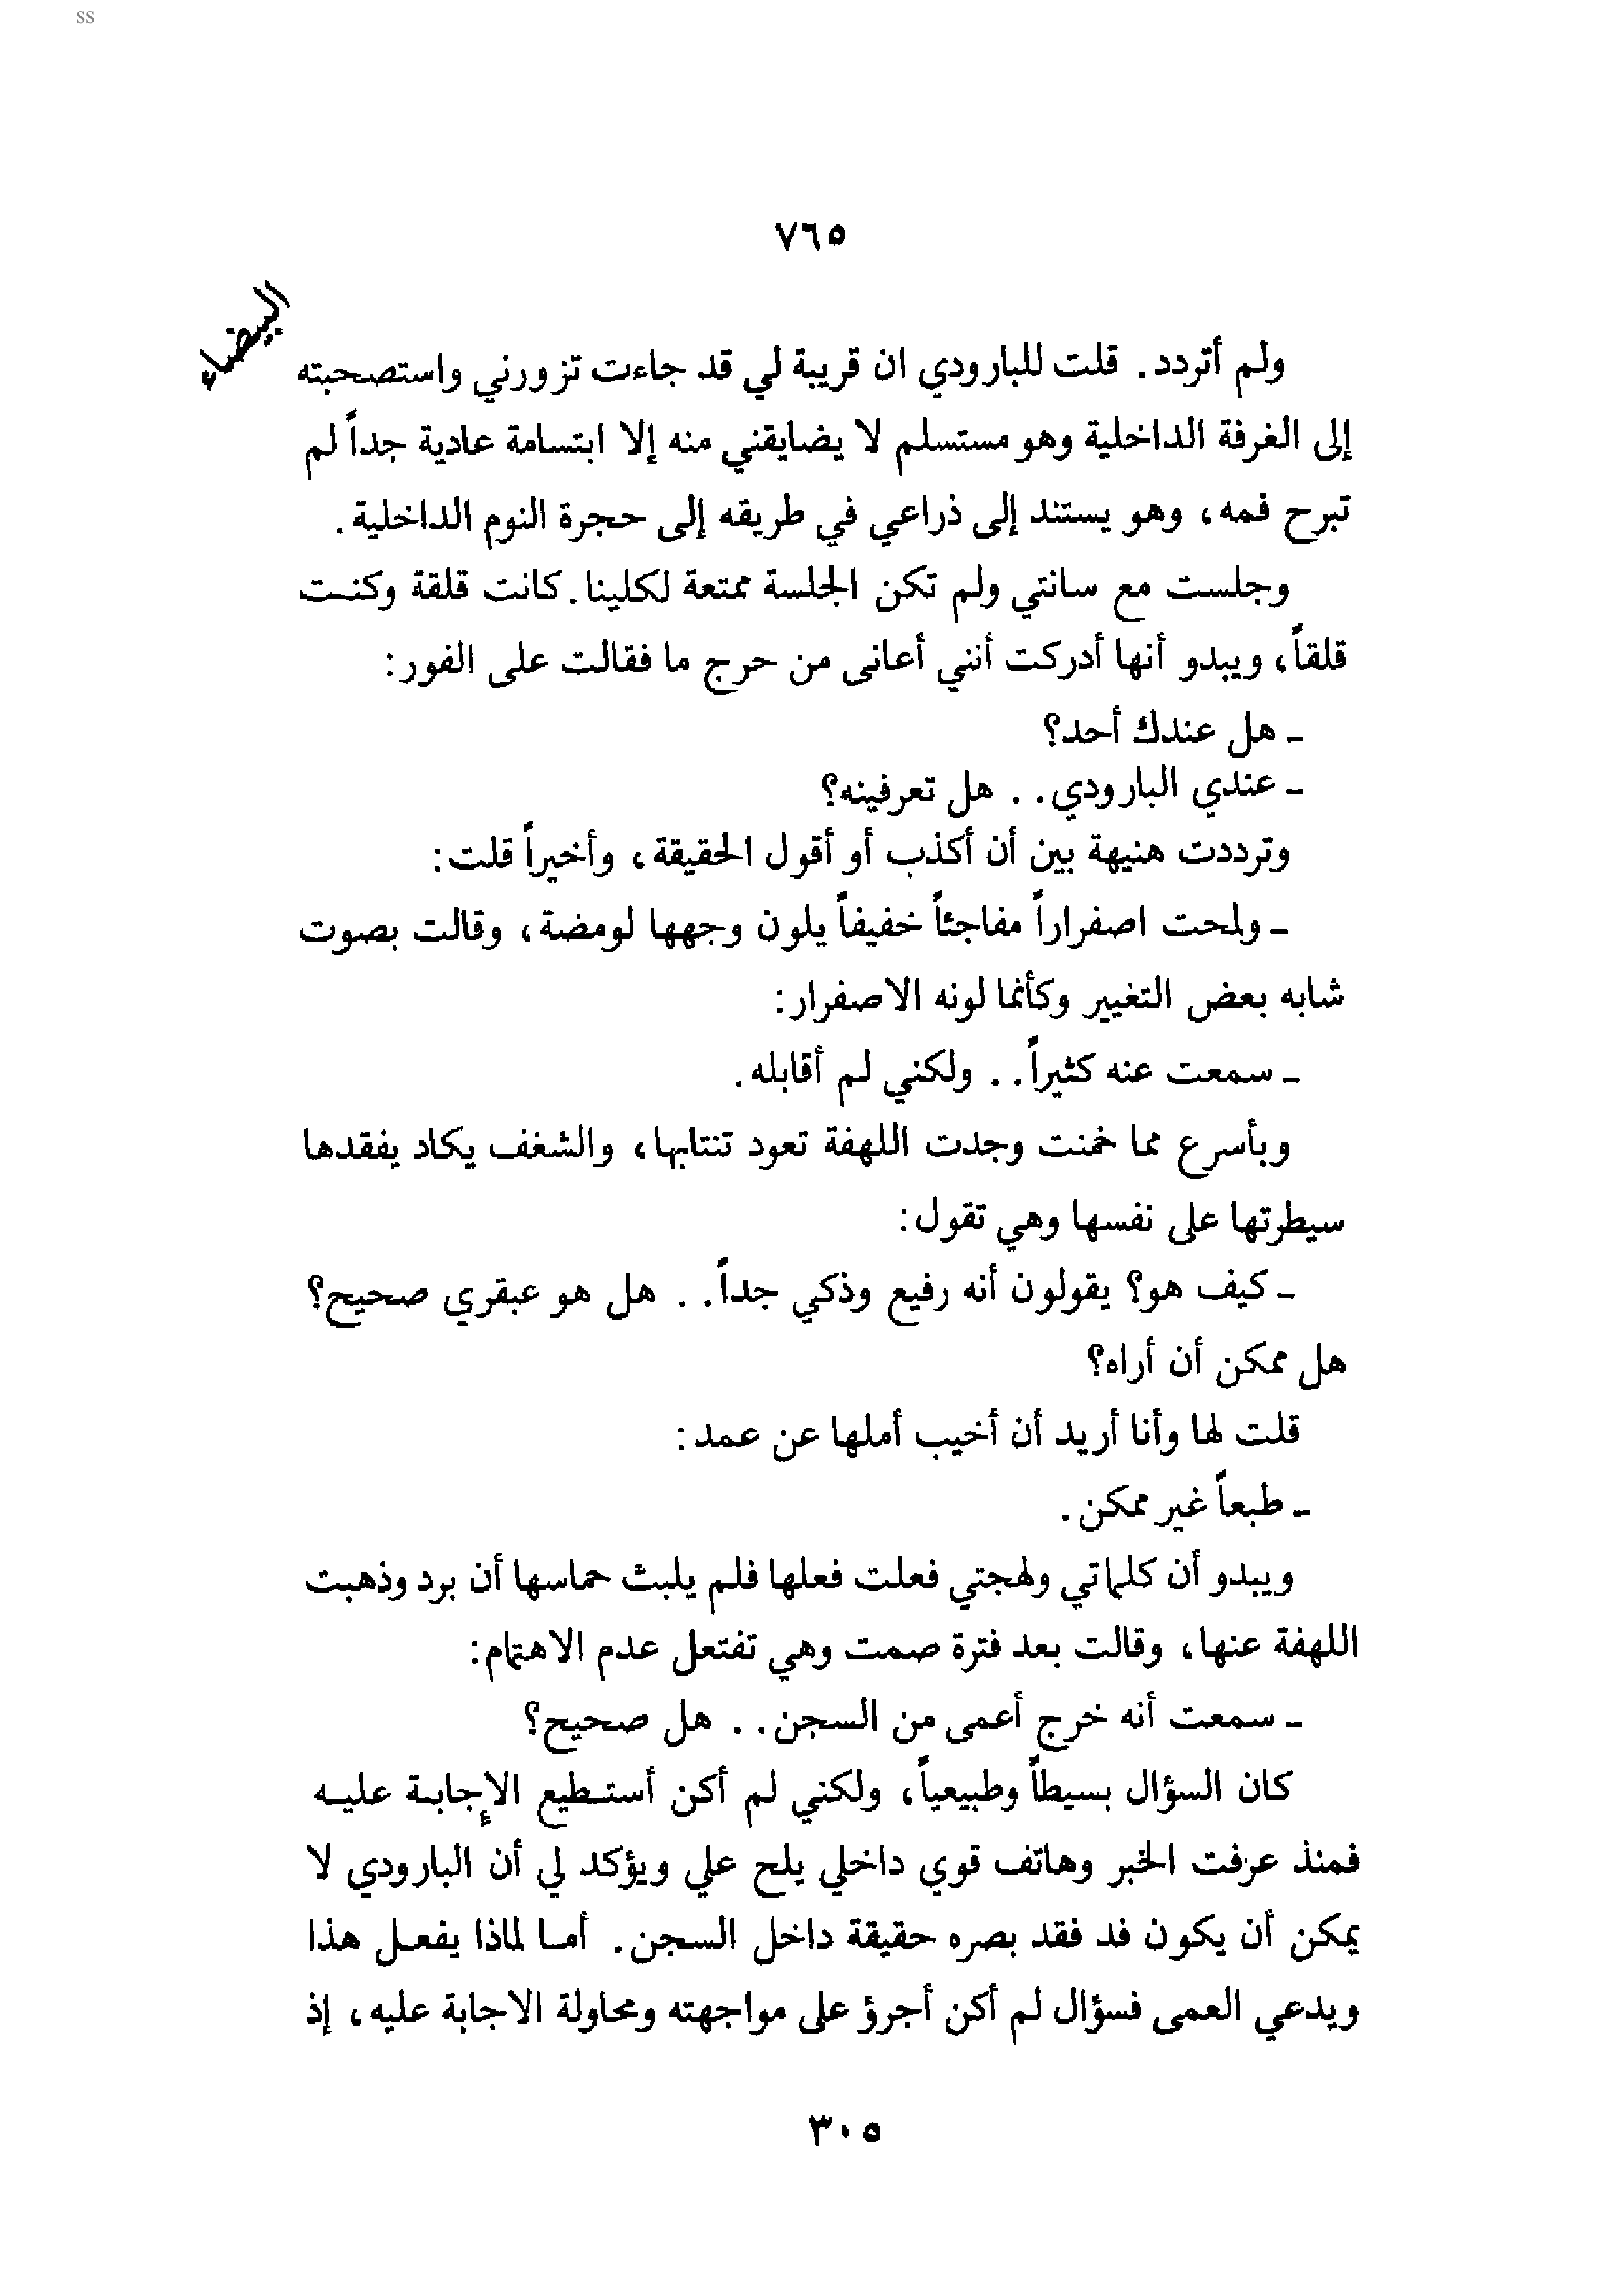 ss
٧٦٥
البيضاء
ولم أتردد. قلت للبارودي ان قريبة لي قد جاءت تزورني واستصحبته
إلى الغرفة الداخلية وهو مستسلم لا يضايقني منه إلا ابتسامة عادية جداً لم
تبرح فمه، وهو يستند إلى ذراعي في طريقه إلى حجرة النوم الداخلية.
وجلست مع سانتي ولم تكن الجلسة ممتعة لكلينا. كانت قلقة وكنت
قلقاً، ويبدو أنها أدركت أنني أعانى من حرج ما فقالت على الفور:
ـ هل عندك أحد؟
ـ عندي البارودي. . هل تعرفينه؟
وترددت هنيهة بين أن أكذب أو أقول الحقيقة، وأخيراً قلت:
ـ ولمحت اصفراراً مفاجئاً خفيفاً يلون وجهها لومضة، وقالت بصوت
شابه بعض التغيير وكأنما لونه الاصفرار:
ـ سمعت عنه كثيراً. . ولكني لم أقابله.
وبأسرع مما خمنت وجدت اللهفة تعود تنتابها، والشغف يكاد يفقدها
سيطرتها على نفسها وهي تقول:
ـ كيف هو؟ يقولون أنه رفيع وذكي جداً. . هل هو عبقري صحيح؟
هل ممكن أن أراه؟
قلت لها وأنا أريد أن أخيب أملها عن عمد:
ـ طبعاً غير ممكن.
ويبدو أن كلماتي ولهجتي فعلت فعلها فلم يلبث حماسها أن برد وذهبت
اللهفة عنها، وقالت بعد فترة صمت وهي تفتعل عدم الاهتمام:
ـ سمعت أنه خرج أعمى من السجن. . هل صحيح؟
كان السؤال بسيطاً وطبيعياً، ولكني لم أكن أستطيع الإجابة عليه
فمنذ عرفت الخبر وهاتف قوي داخلي يلح علي ويؤكد لي أن البارودي لا
يمكن أن يكون فد فقد بصره حقيقة داخل السجن. أما لماذا يفعل هذا
ويدعي العمى فسؤال لم أكن أجرؤ على مواجهته ومحاولة الاجابة عليه، إذ
٣٠٥